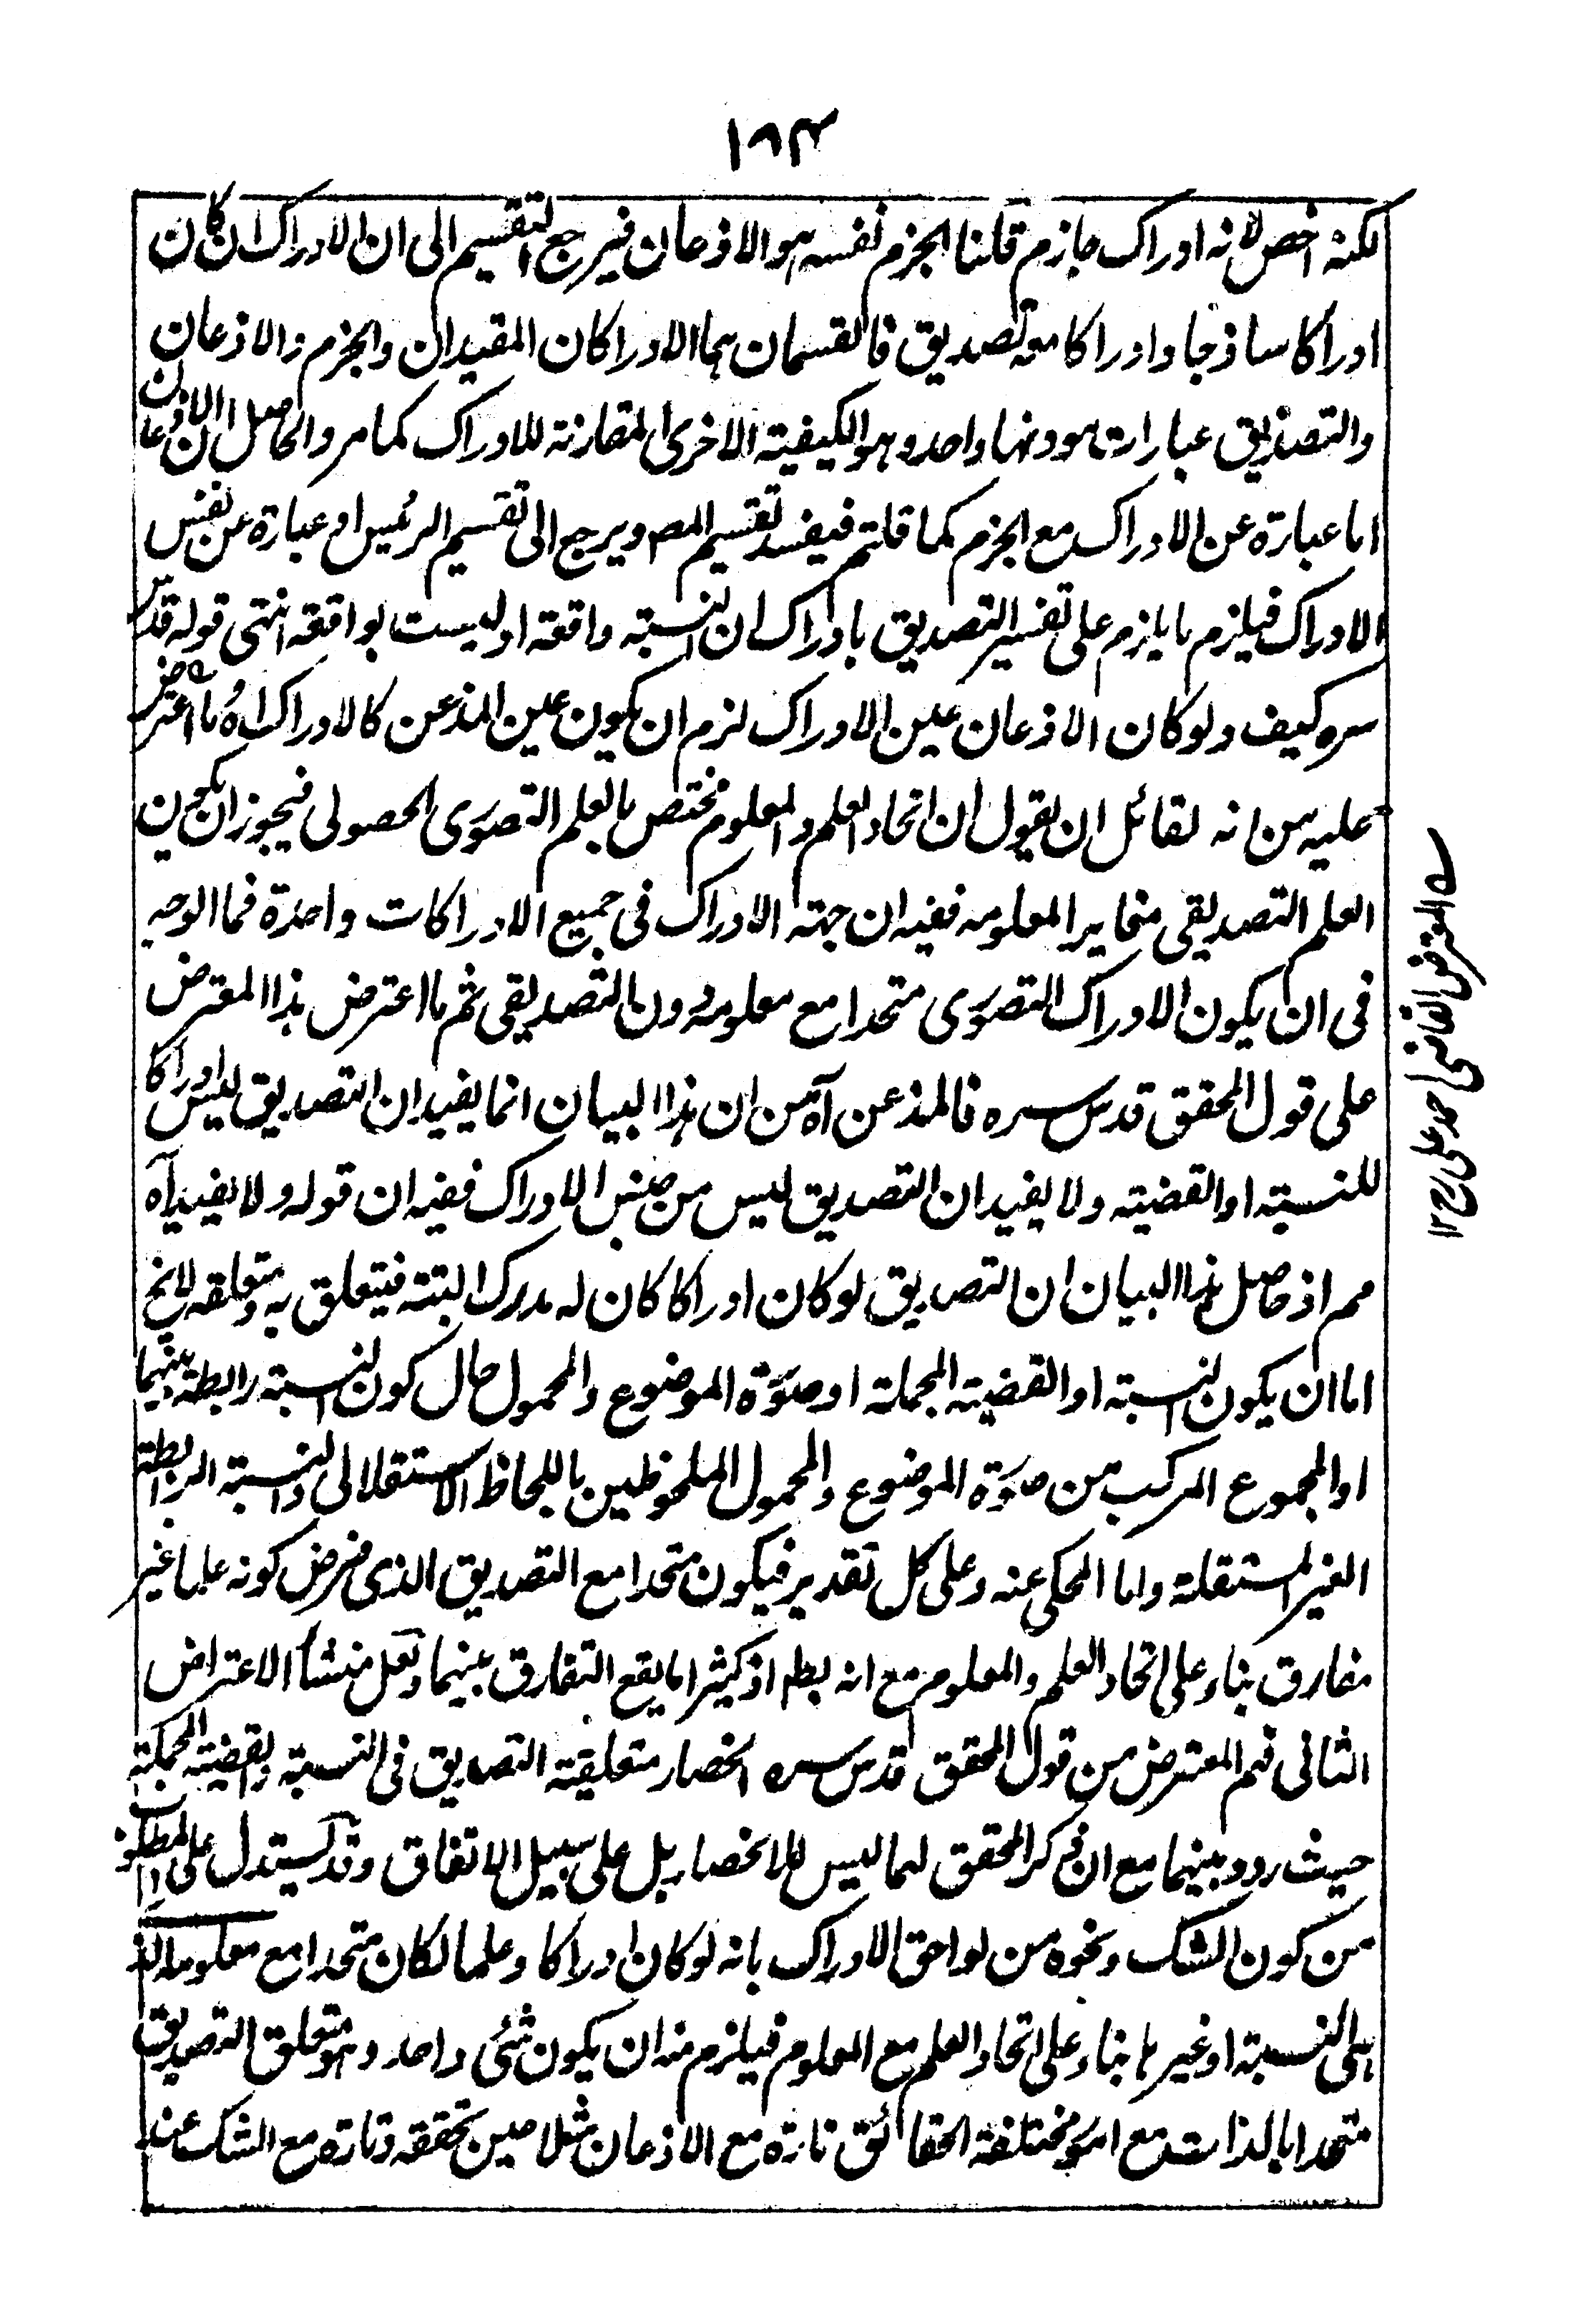 ١٦٣
لكنه اخص لانه ادراك جازم قلنا الجزم نفسه هو الاذعان فيرجع التقسيم الى ان الادراك ان كان
ادراكا ساذجا وادراكا معه تصديق فالقسمان هما الادراكان المقيدان والجزم والاذعان
والتصديق عبارات مودنها واحد وهو الكيفية الاخرى المقارنة للادراك كما مر والحاصل ان الاذعان
اما عبارة عن الادراك مع الجزم كما قلتم فيفسد تقسيم المصـ ويرجع الى تقسيم الرئيس او عبارة عن نفس
الادراك فيلزم ما يلزم على تفسير التصديق بادراك ان النسبة واقعة او ليست بواقعة انتهى قوله قدس
سره كيف ولو كان الاذعان عين الادراك لزم ان يكون عين المذعن كالادراك اه ما اعترض
عليه من انه لقائل ان يقول ان اتحاد العلم والمعلوم مختص بالعلم التصوري الحصولي فيجوز ان يكون
العلم التصديقي مغاير المعلومه ففيه ان جهة الادراك في جميع الادراكات واحدة فما الوجه
في ان يكون الادراك التصوري متحدا مع معلومه دون التصديقي ثم ما اعترض هذا المعترض
على قول المحقق قدس سره فالمذعن آه من ان هذا البيان انما يفيد ان التصديق ليس ادراكا
للنسبة او القضية ولا يفيد ان التصديق ليس من جنس الادراك ففيه ان قوله ولا يفيد آه
مم اذ حاصل هذا البيان ان التصديق لو كان ادراكا كان له مدرك البتة فيتعلق به ومتعلقه لا يخ
اما ان يكون النسبة او القضية المجملة او صورة الموضوع والمحمول حال كون النسبة رابطة بينهما
او المجموع المركب من صورة الموضوع والمحمول الملحوظين باللحاظ الاستقلالي والنسبة الرابطة
الغير المستقلة واما المحكي عنه وعلى كل تقدير فيكون متحدا مع التصديق الذي فرض كونه علما غير
مفارق بناء على اتحاد العلم والمعلوم مع انه بط اذ كثيرا ما يقع التفارق بينهما ولعل منشأ الاعتراض
الثاني فهم المعترض من قول المحقق قدس سره انحصار متعلقية التصديق في النسبة والقضية المجملة
حيث ردد بينهما مع ان ذكر المحقق لهما ليس للانحصار بل على سبيل الاتفاق وقد يستدل على المطلوب
من كون الشك ونحوه من لواحق الادراك بانه لو كان ادراكا وعلما لكان متحدا مع معلومه الذ
هى النسبة او غيرها بناء على اتحاد العلم مع المعلوم فيلزم منه ان يكون شئ واحد وهو متعلق التصديق
متحدا بالذات مع امور مختلفة الحقائق تارة مع الاذعان مثلا حين تحققه وتارة مع الشك عند
ے المعترض القاضى احمد على رح ١٢